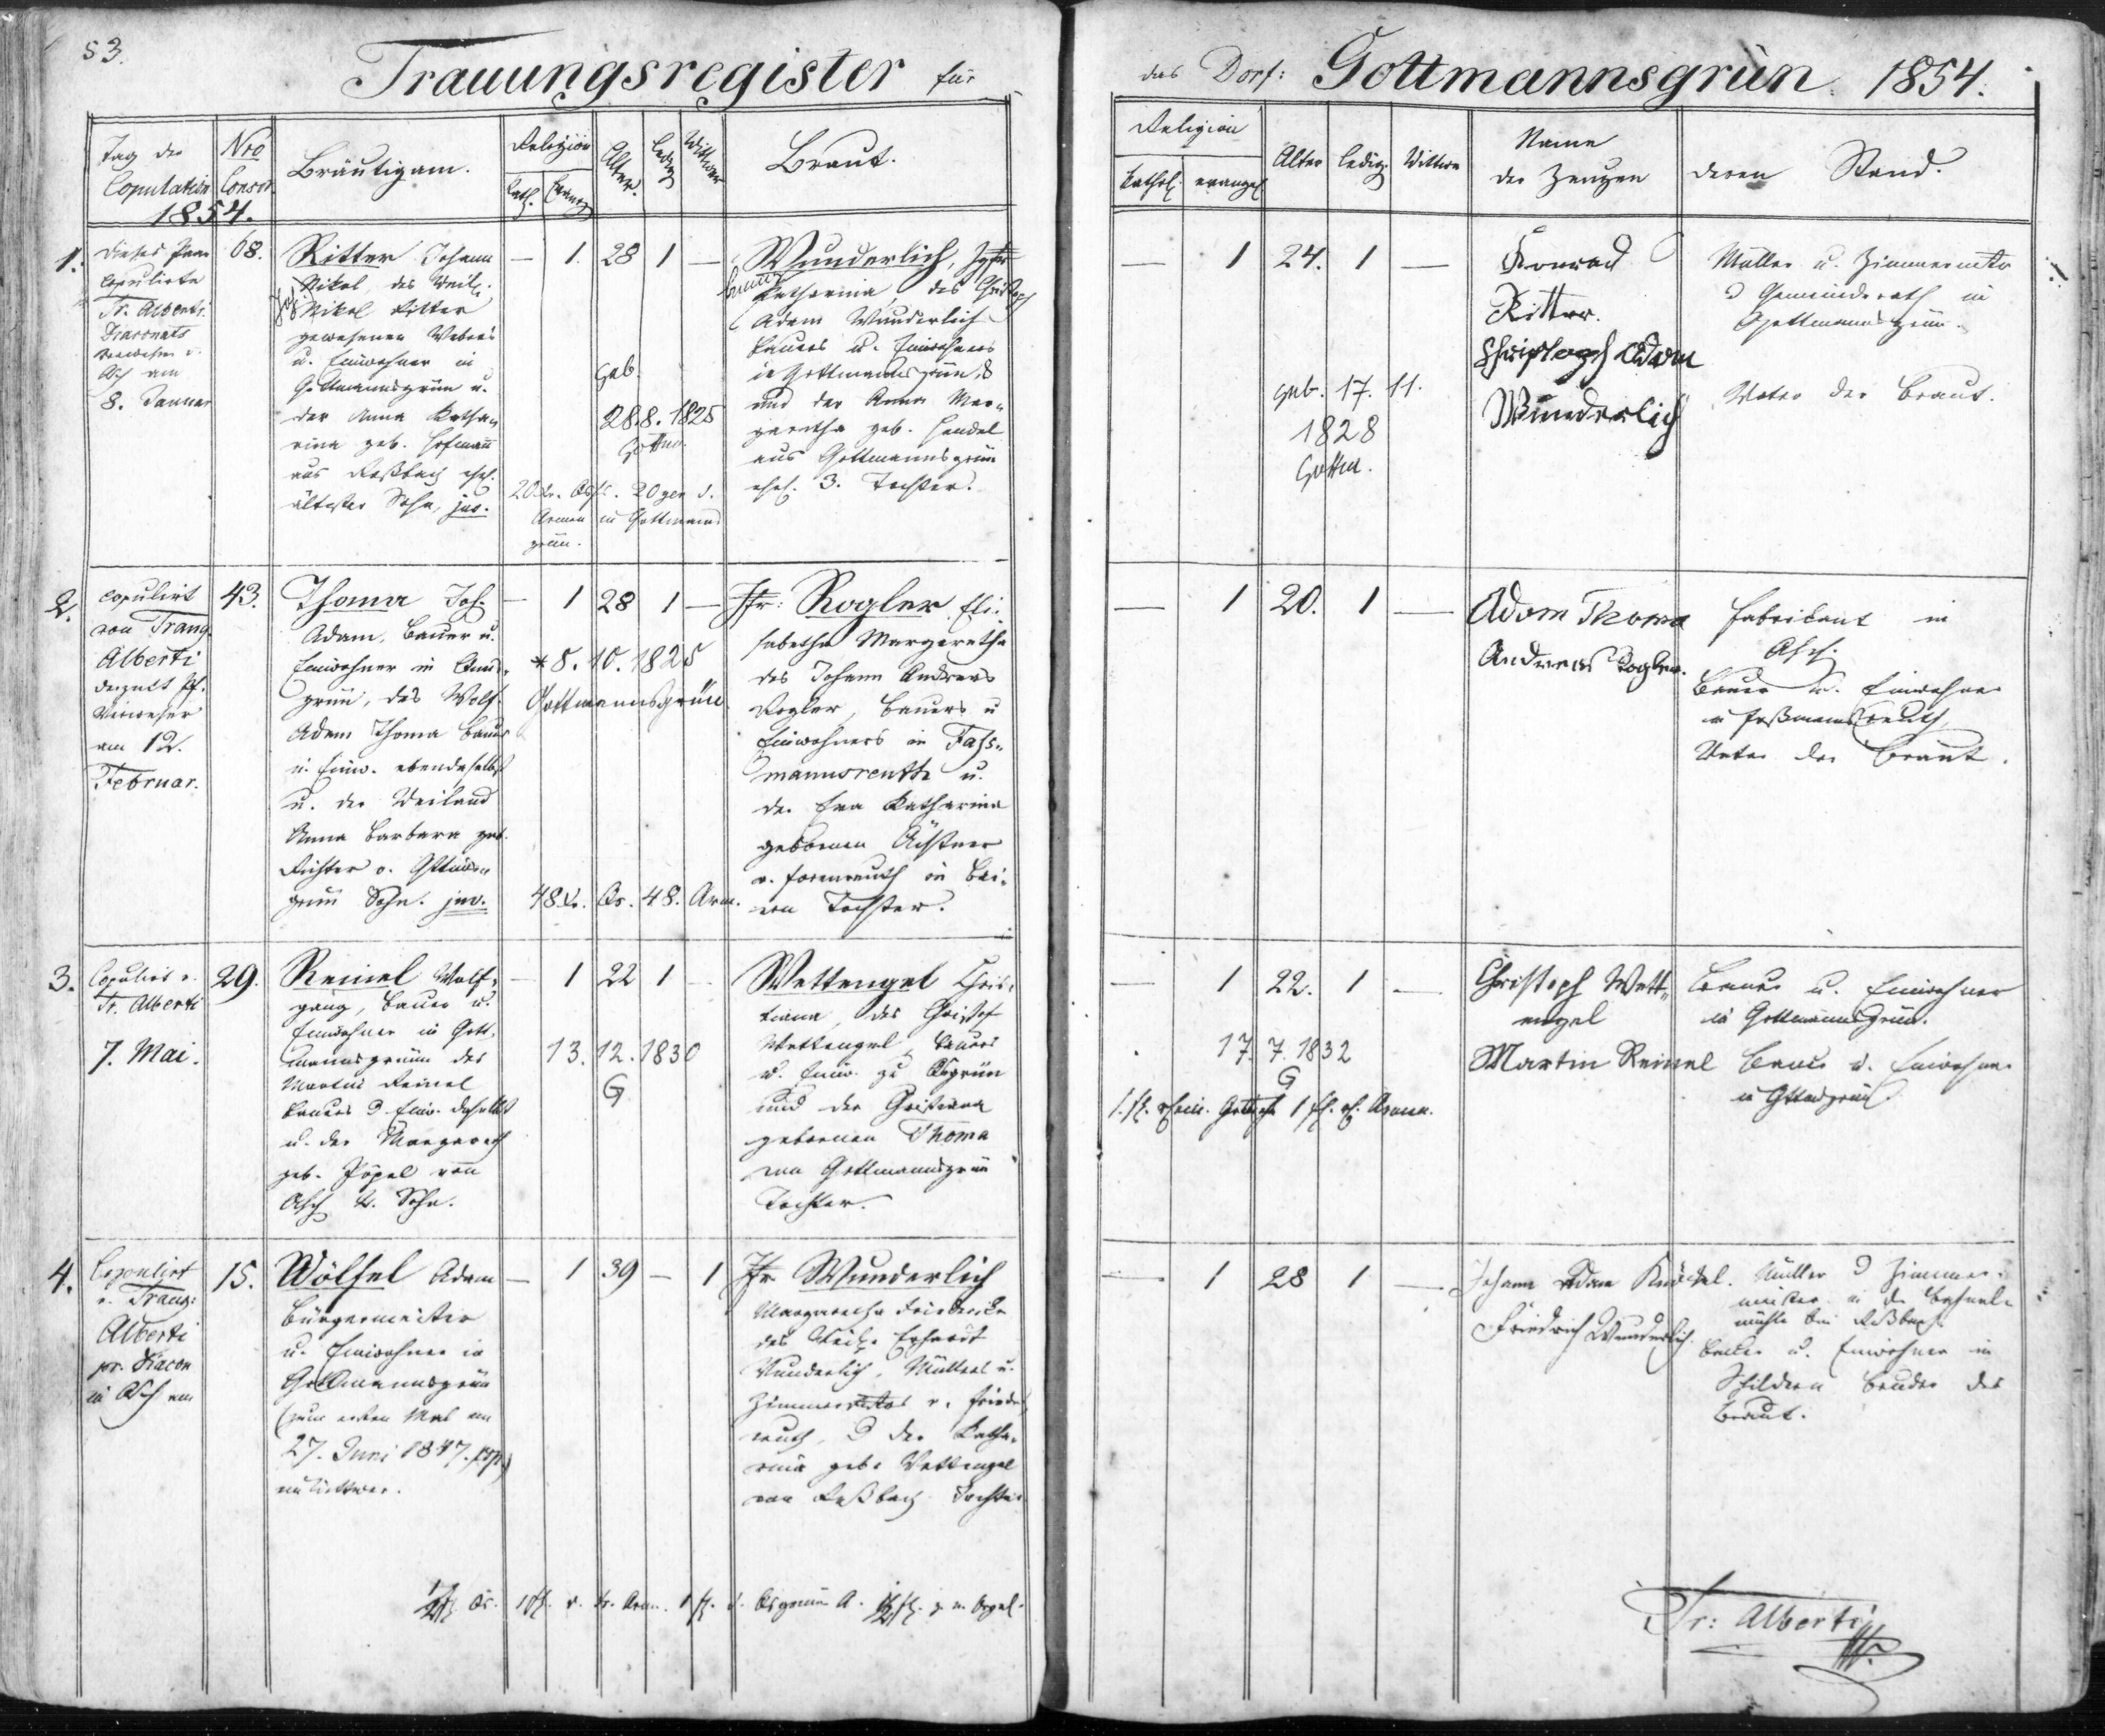 53.
Trauungsregister für
das Dorf: Gottmannsgrün. 1854.
Tag der
Copulation
1854.
Nro
Conscr.
Bräutigam.
Religion
Kath. Evang.
Alter.
ledig
Wittwer
Braut.
Religion
kathol. evangel.
Alter ledig Wittwe
Name
der Zeugen
deren Stand.
1.
dieses Paar
copulirte
Tr. Alberti
Diaconats
verweser
Asch am
8. Januar
68.
Ritter Johann
Nikol, des Weil.
Nikol Ritter
gewesenen Webers
u. Einwohner in
Gottmannsgrün u.
der Anna Katha-
rina geb. Hofmann
aus Roßbach ehel.
ältester Sohn, juv.
— 1. 28 1 —
geb.
28.8.1825
Gottm.
20 gr d.
Armen in Gottmanns
grün.
Wunderlich,
Katharina, des Christoph
Adam Wunderlich
Bauers u. Einwohners
in Gottmannsgrün
und der Anna Mar-
garetha geb. Hendel
aus Gottmannsgrün
ehel. 3. Tochter.
— 1 24. 1 —
geb. 17. 11.
1828
Gottm.
Konrad
Ritter.
Christoph Adam
Wunderlich
Müller u. Zimmermstr
Gemeinderath in
Gottmannsgrün.
Vater der Braut.
2.
copulirt
von Traug.
Alberti
derzeit Pf.
Verweser
am 12.
Februar.
43.
Thoma Joh.
Adam, Bauer u.
Einwohner in
grün, des Wolf.
Adam Thoma Bauer
u. Einw. ebendaselbst
u. der Weiland
Anna Barbara geb.
Richter v. Gttmans
grün Sohn. juv.
— 1 28 1 —
* 8. 10. 1825
Gottmannsgrün
48. 48. Arm.
Jfr: Rogler Eli-
sabetha Margaretha
des Johann Andreas
Rogler, Bauers u
Einwohners in Fass-
mannsreuth u.
der Eva Katharina
gebornen
v. in
Tochter.
— 1 20. 1 —
Adam Thoma
Andreas Rogler.
Fabrikant in
Asch.
Bauer u. Einwohner
in Faßmannsreuth,
Vater der Braut.
3.
Copulirt v.
Tr. Alberti
7. Mai.
29.
Reinel Wolf-
gang, Bauer u.
Einwohner in Gott-
mannsgrün des
Martin Reinel
Bauers Einw. daselbst
u. der Margareth
geb. Pöpel von
Asch Sohn.
— 1 22 1 —
13. 12. 1830
G
Wettengel Chris-
tiana, des Christof
Wettengel Bauers
u. Einw. zu
und der Christiana
gebornen Thoma
von Gottmannsgrün
Tochter.
— 1 22. 1 —
17. 7. 1832
G
Christoph Wett-
engel
Martin Reinel
Bauer u. Einwohner
in Gottmannsgrün.
Bauer u. Einwohner
in Gttmsgrün
4.
Copulirt
v. Traug:
Alberti
pr. Diacon
in Asch am
15.
Wölfel Adam
Bürgermeister
u. Einwohner in
Gottmannsgrün
(zum ersten Mal am
27. Juni 1847. cop.)
ein Wittwer.
— 1 39 — 1
Jfr Wunderlich
Margaretha Friedericke
des Weil. Erhardt
Wunderlich, Müllers u.
Zimmermstrs v. Frieders
reuth, der Katha-
rina geb. Wettengel
von Roßbach Tochter
— 1 28 1 —
Johann Adam Knöckel.
Friedrich Wunderlich.
Müller Zimmer-
meister in der
mühle bei Roßbach.
Bauer u. Einwohner in
Schildern Bruder der
Braut.
Tr: Alberti